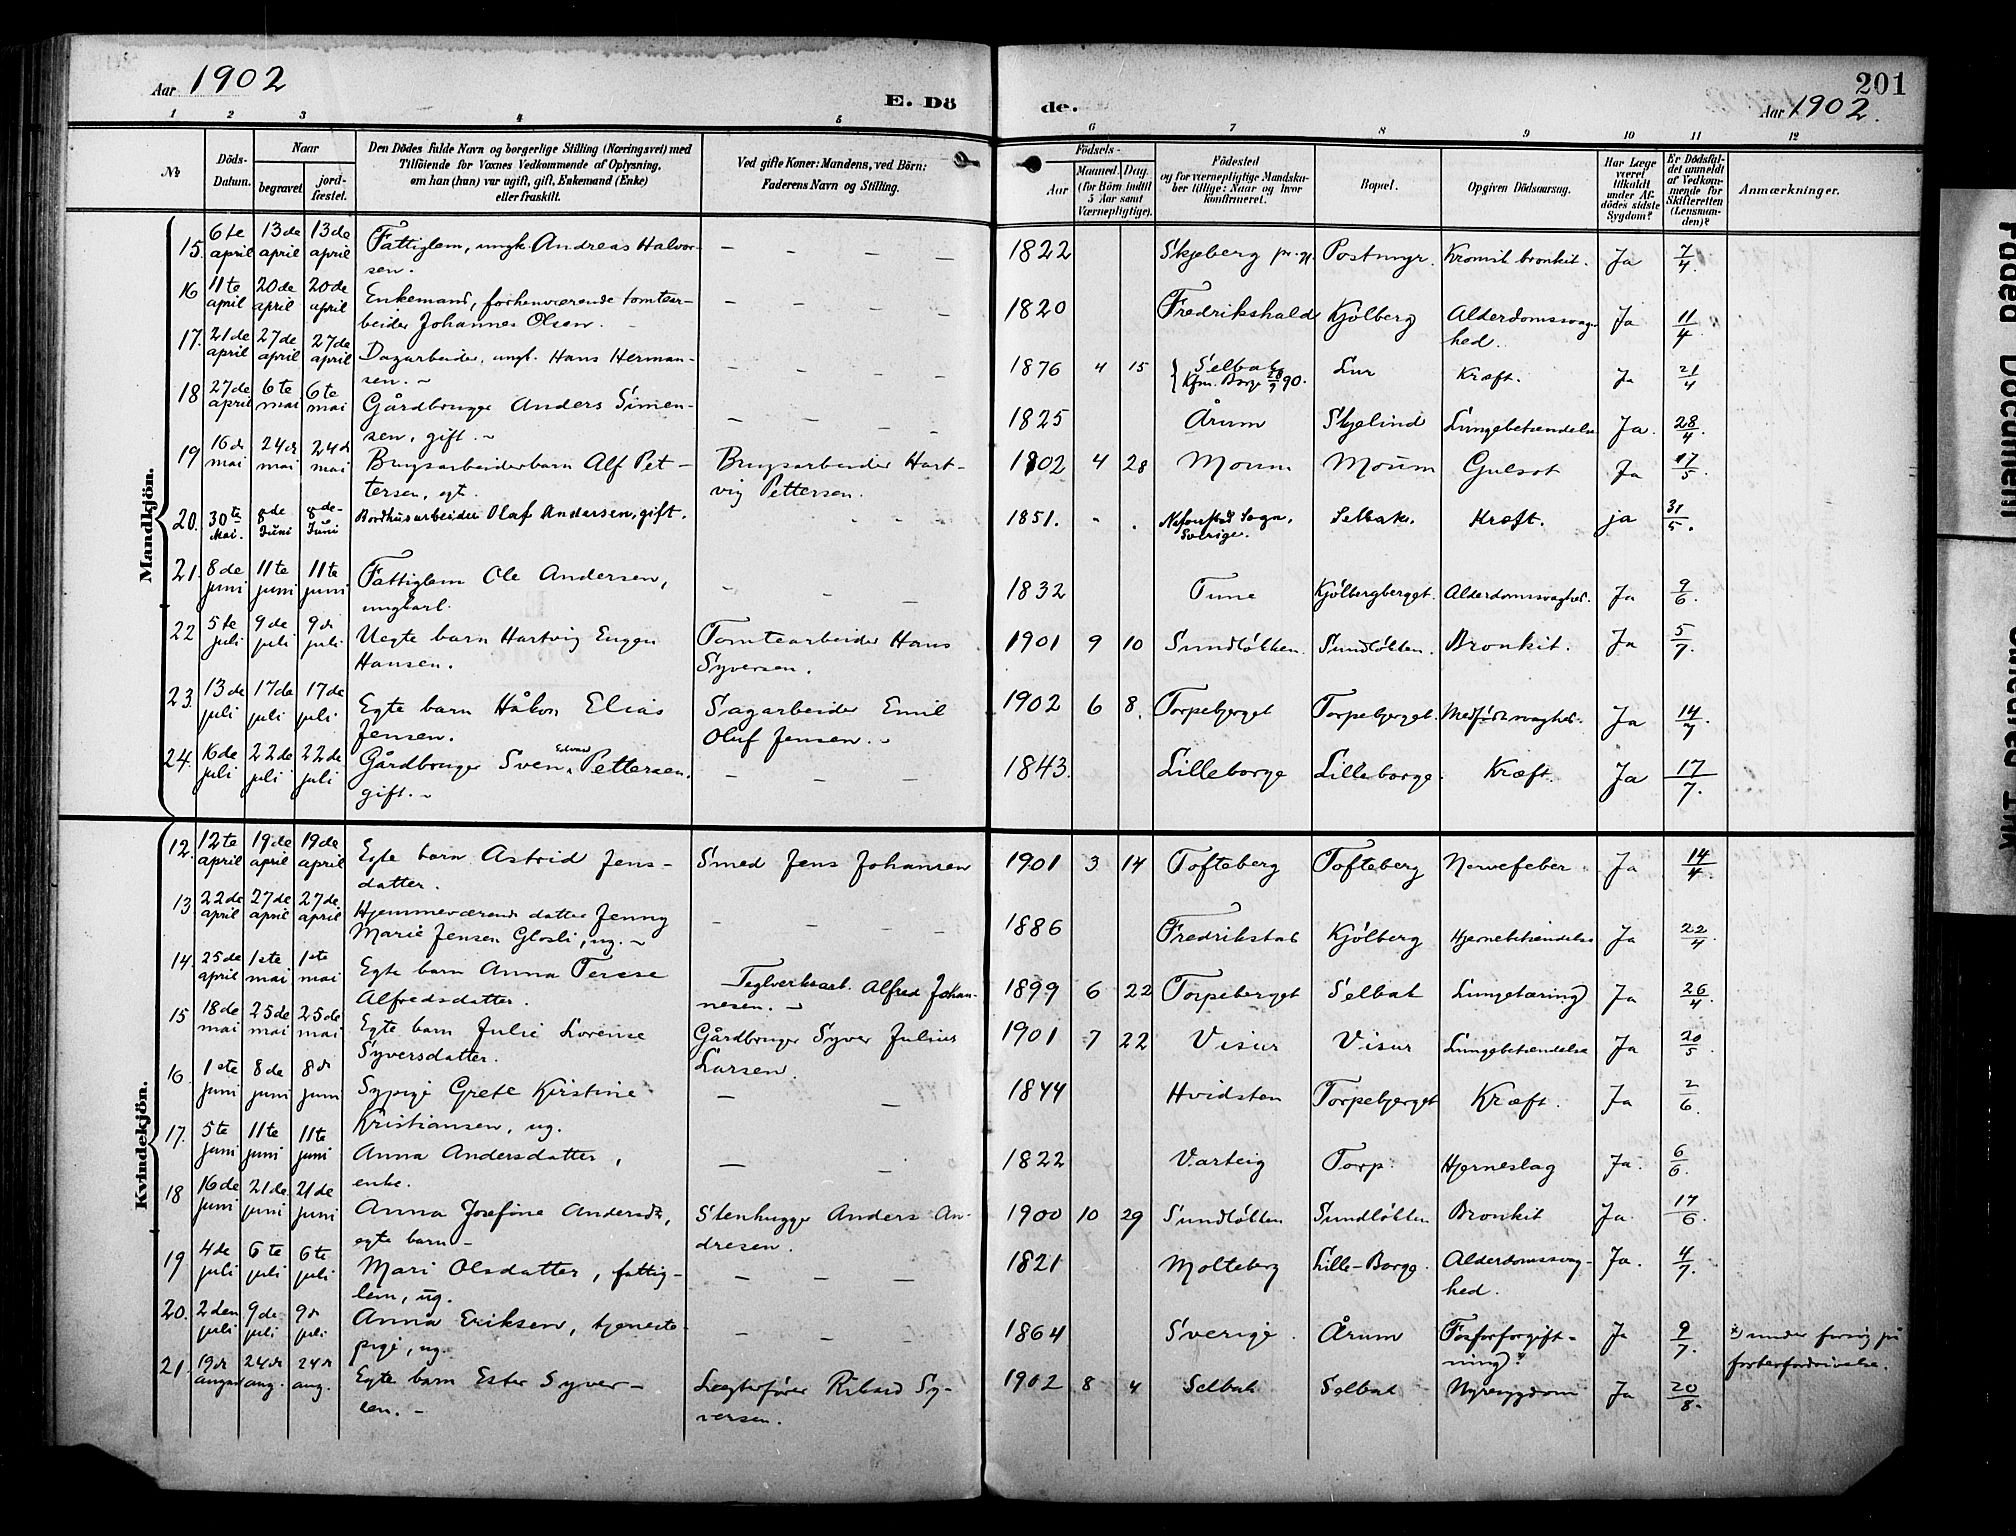 Aar 1902
E. Dö
de.
201
Aar 1902.
1 2 3 4 5 6 7 8 9 10 11 12
№
Döds-
Datum.
Naar
begravet.
jord-
fæstet.
Den Dödes fulde Navn og borgerlige Stilling (Næringsvei) med
Tilföiende for Voxnes Vedkommende af Oplysning,
om han (hun) var ugift, gift, Enkemand (Enke)
eller fraskilt.
Ved gifte Koner: Mandens, ved Börn:
Faderens Navn og Stilling.
Födsels-
Aar
Maaned. Dag.
(for Börn indtil
5 Aar samt
Værnepligtige).
Födested
og for værnepligtige Mandska-
ber tillige: Naar og hvor
konfirmeret.
Bopæl.
Opgiven Dödsaarsag.
Har Læge
været
tilkaldt
under Af-
dödes sidste
Sygdom?
Er Dödsfal-
det anmeldt
af Vedkom-
mende for
Skifteretten
(Lensman-
den)?
Anmærkninger.
Mandkjön.
15. 6te april 13de april 13de april Fattiglem, ungk. Andreas Halvor-
sen. — — — 1822 Skjeberg Postmyr. Kronisk bronkit. Ja 7/4.
16 11te april 20de april 20de april Enkemand, forhenværende tomtear-
beider Johannes Olsen. — — — 1820 Fredrikshald Kjölberg Alderdomssvag-
hed. Ja 11/4.
17. 21de april 27de april 27de april Dagarbeider, ungk. Hans Herman-
sen. — — — 1876 4 15 Selbak
Kfm. Borge 28/9 90. Lur Kræft. Ja 21/4
18 27de april 6te mai 6te mai Gårdbruger Anders Simen-
sen, gift. — — — 1825 Årum Skjelind Lungebetændelse Ja. 28/4.
19 16de mai 24de mai 24de mai Brugsarbeiderbarn Alf Pet-
tersen, egt. Brugsarbeider Hart-
vig Pettersen. 1902 4 28 Moum Moum Gulsot Ja 17/5.
20. 30te Mai. 8de Juni 8de Juni Bordhusarbeider Olaf Andersen, gift. - - - 1851. Sogn,
Sverige. Selbak. Kræft. ja 31/5.
21. 8de juni 11te juni 11te juni Fattiglem Ole Andersen,
ungkarl. — — — 1832 Tune Kjölbergberget. Alderdomssvaghed. Ja 9/6.
22 5te juli 9de juli 9de juli Uegte barn Hartvig Eugen
Hansen. Tomtearbeider Hans
Syversen. 1901 9 10 Sundlökken. Sundlökken. Bronkit. Ja 5/7.
23. 13de juli 17de juli 17de juli Egte barn Håkon Elias
Jensen. Sagarbeider Emil
Oluf Jensen. 1902 6 8. Torpebjerget Torpebjerget. Medfödt svaghed. Ja 14/7.
24. 16de juli 22de juli 22de juli Gårdbruger Sven Edvard Pettersen.
gift. — — — 1843. Lilleborge Lilleborge. Kræft. Ja 17/7.
Kvindekjön.
12. 12te april 19de april 19de april Egte barn Astrid Jens-
datter. Smed Jens Johansen 1901 3 14 Tofteberg Tofteberg Nervefeber Ja 14/4.
13. 22de april 27de april 27de april Hjemmeværende datter Jenny
Marie Jensen Glosli, ug. — — — 1886 Fredrikstad Kjölberg Hjernebetændelse Ja 22/4.
14. 25de april 1ste mai 1ste mai Egte barn Anna Terese
Alfredsdatter. Teglverksarb. Alfred Johan-
nesen. 1899 6 22 Torpeberget Selbak Lungetæring Ja 26/4.
15 18de mai 25de mai 25de mai Egte barn Julie Lorense
Syversdatter. Gårdbruger Syver Julius
Larsen. 1901 7 22 Visur Visur Lungebetændelse Ja 20/5.
16 1ste juni 8de juni 8de juni Sypige Grete Kirstine
Kristiansen, ug. — — 1844 Hvidsten Torpebjerget Kræft. Ja 2/6.
17. 5te juni 11te juni 11te juni Anna Andersdatter,
enke. — — 1822 Varteig Torp. Hjerneslag Ja. 6/6.
18 16de juni 21de juni 21de juni Anna Josefine Andersdt.,
egte barn Stenhugger Anders An-
dresen. 1900 10 29 Sundlökken Sundlökken Bronkit Ja. 17/6.
19 4de juli 6te juli 6te juli Mari Olsdatter, fattig-
lem, ug. — — — 1821 Molteberg Lille-Borge. Alderdomssvag-
hed. Ja. 4/7.
20. 2den juli 9de juli 9de juli Anna Eriksen, tjeneste-
pige, ug. — — — 1864 Sverige. Årum Fosforforgift-
ning). Ja 9/7. under forsøg på
fosterfordrivelse.
21. 19de august 24de aug. 24de aug. Egte barn Ester Syver-
sen. Lægterfører Rikard Sy-
versen. 1902 8 4 Selbak Selbak Nyresygdom Ja 20/8.
Faded Document